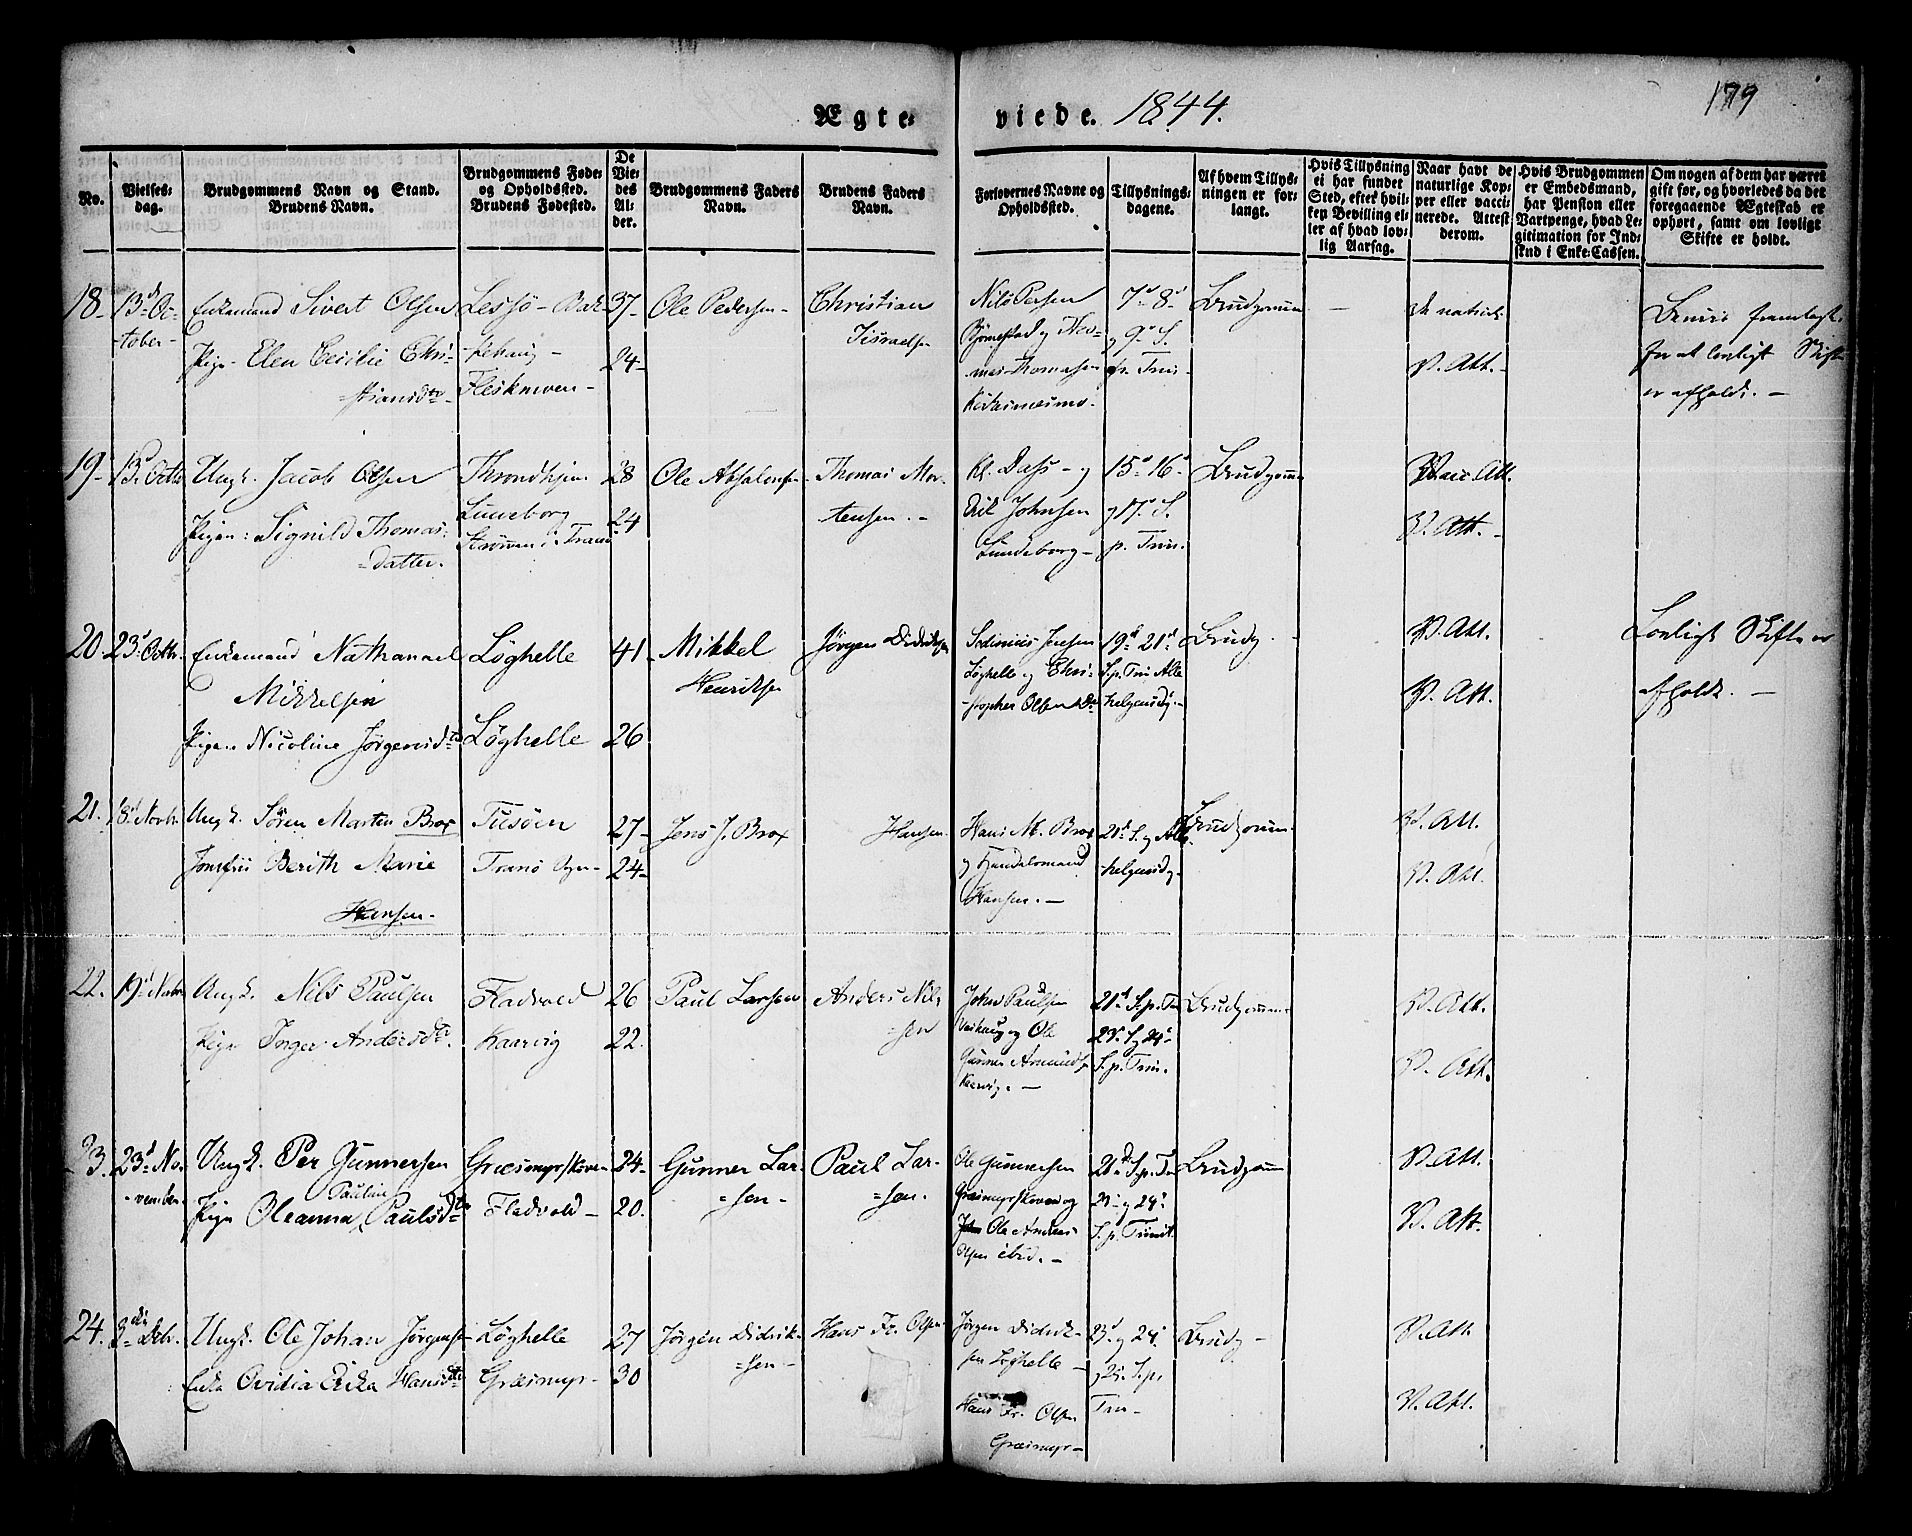 Ægte-
viede. 1844.
179
No.
Vielses-
dag.
Brudgommens Navn og Stand.
Brudens Navn.
Brudgommens Føde-
og Opholdssted.
Brudens Fødested.
De
Vie-
des
Al-
der.
Brudgommens Faders
Navn.
Brudens Faders
Navn.
Forlovernes Navne og
Opholdssted.
Tillysnings-
dagene.
Af hvem Tillys-
ningen er for-
langt.
Hvis Tillysning
ei har fundet
Sted, efter hvil-
ken Bevilling el-
ler af hvad lov-
lig Aarsag.
Naar havt de
naturlige Kop-
per eller vacci-
nerede. Attest
derom.
Hvis Brudgommen
er Embedsmand,
har Pension eller
Vartpenge, hvad Le-
gitimation for Ind-
skud i Enke-Cassen.
Om nogen af dem har været
gift før, og hvorledes da det
foregaaende Ægteskab er
ophørt, samt om lovligt
Skifte er holdt.
18- 13d Oc-
tober-
Enkemand Sivert Olsen
Pige- Elen Cecilie Chri-
stiansdtr-
Lessø-
Fleskmoen-
37-
24-
Ole Pedersen-
Christian
Jisraelsen
Nils Persen
Bjørnestad og Tho-
mas Thomasen
7d 8d
og 9d S.
p. Trin.
Brudgommen
-
de naturl.
V. Att.-
Beviis fremlagt
for at lovligt Skifte
er afholdt. -
19- 13d Octb.
Ungk. Jacob Olsen
Pigen: Signild Thomas-
datter.
Throndhjem
Luneborg
Strømen i Tranø
28
24
Ole Absalonsen-
Thomas Mor-
tensen. -
Kl. Dass- og
Erik Johnsen
Lundeborg-
15d 16d
og 17d S.
p. Trin.
Brudgommen
Vacc. Att.
V. Att. -
20. 23d Octbr.
Enkemand Nathanael
Mikkelsen
Pigen Nicoline Jørgensdtr
Løghelle
Løghelle
41-
26
Mikkel
Henriksen
Jørgen Didriksen
Jensen
Løghelle og Chri-
stopher Olsen
19d 21d
S. p. Trin Alle
helgensdg.-
Brudg.
V. Att.
V. Att.
Lovligt Skifte er
afholdt. -
21. 18d Novbr.
Ungk. Sören Martin Brox
Jomfru Berith Marie
Hansen-
Tusøen
Tranø
27-
24-
Jens J. Brox
Hansen-
Hans M. Brox
og Handelsmand
Hansen. -
21d S. og Alle
helgensdg-
Brudgommen
V. Att.
V. Att.
22. 19d Novbr
Ungk. Nils Paulsen
Pige Inger Andersdtr.
Fladvold
Kaarvig
26
22.
Paul Larsen
Anders Nil-
sen
John Paulsen
og Ole
Gunner Amundsen
Kaarvig. -
21d S. p. Tr
23d S. og 24d
S. p. Trin.
Brudgommen
V. Att.
V. Att.
23. 23d No-
vember.
Ungk. Per Gunnersen
Pauline
Pige Oleanna Paulsdtr
Græsmyrskoven
Fladvold-
24-
20.
Gunner Lar-
sen-
Paul Lar-
sen.
Ole Gunnersen
Græsmyrskoven og
Ole Andreas
Olsen ibid. -
21d S. p. Tr
23- og 24d
S. p. Trinit.
Brudgom
V. Att.
V. Att.
24. 3die Debr.
Ungk. Ole Johan Jørgensen
Enke Ovidia Erika Hansdtr
Løghelle
Græsmyr-
27
30
Jørgen Didrik-
sen-
Hans Fr. Olsen-
Jørgen Didrik-
sen Løghelle-
Hans Fr. Olsen
Græsmyr-
23d og 24d
og 25 S. p.
Trin-
Brudg-
V. Att.
V. Att.